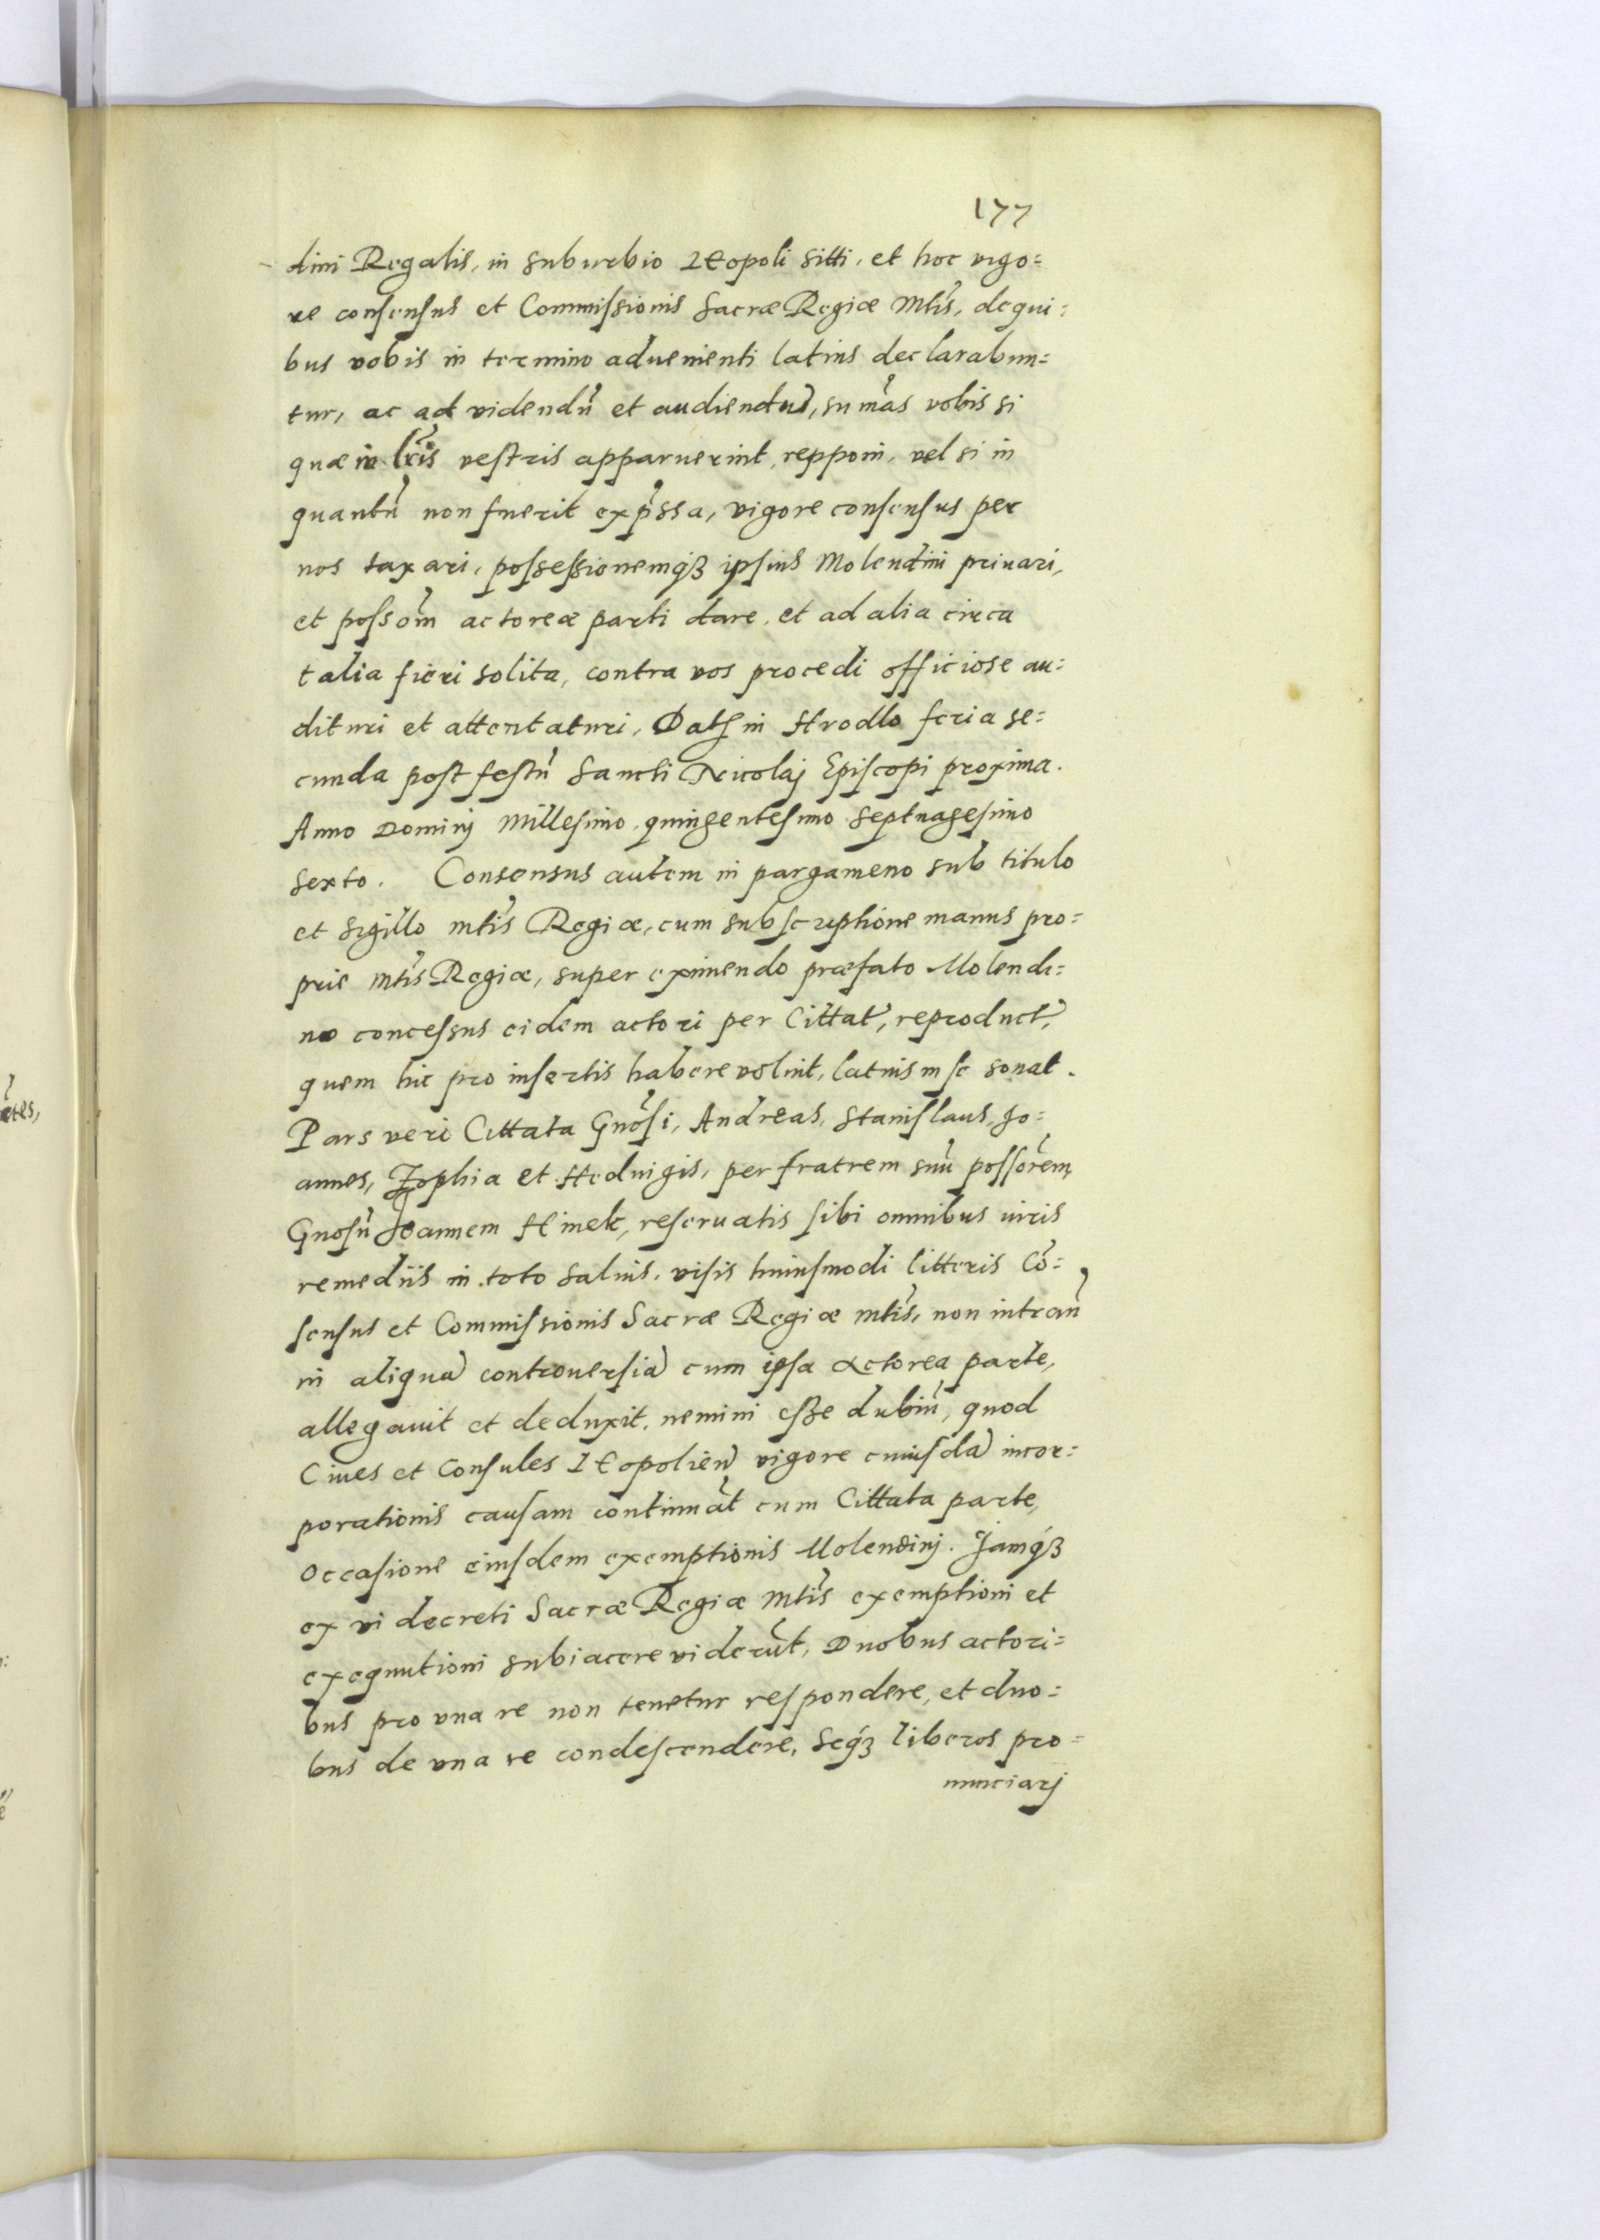 177
dini Regalis, in suburbio Leopoli sitti, et hoc vigo=
re consensus et Commissionis Sacræ Regiæ Mtis, de qui=
bus vobis in termino aduenienti latius declarabun=
tur, ac ad videndũ et audiendũ, sum̃as vobis si
quæ in lr̃is vestris apparuerint, repponi, vel si in
quantũ non fuerit exp̃ssa, vigore consensus per
nos taxari, possessionemq3 ipsius Molendini priuari,
et possom̃ actoreæ parti dare, et ad alia circa
talia fieri solita, contra vos procedi officiose au=
dituri et attentaturi, Dat in Hrodlo feria se=
cunda post festũ Sancti Nicolaj Episcopi proxima.
Anno Dominj Millesimo, quingentesimo Septuagesimo
Sexto. Consensus autem in pargameno sub titulo
et Sigillo mtis Regiæ, cum subscriptione manus pro=
prie mtis Regiæ, super eximendo præfato Molendi=
no concessus eidem actori per Cittat, reproduct,
quem hic pro insertis habere volunt, latius in se sonat.
Pars vero Cittata Gnõsi, Andreas, Stanislaus, Jo=
annes, Zophia et Heduigis, per fratrem suũ possorẽm,
Gnosũ Joannem Himek, reseruatis sibi omnibus iuris
remediis in toto saluis, visis huiusmodi litteris Cõ=
sensus et Commissionis Sacræ Regiæ mtis, non intran̄
in aliquã controuersiã cum ipsa actorea parte,
allegauit et deduxit, nemini esse dubiũ, quod
Ciues et Consules Leopolien̄ vigore cuiusdã incor=
porationis causam continuãt cum Cittata parte,
occasione eiusdem exemptionis Molendinj. Jamq3
ex vi decreti Sacræ Regiæ Mtis exemptioni et
exequutioni subiacere viderũt, Duobus actori=
bus pro una re non tenetur respondere, et duo=
bus de vna re condescendere, Seq3 liberos pro=
nunciarj